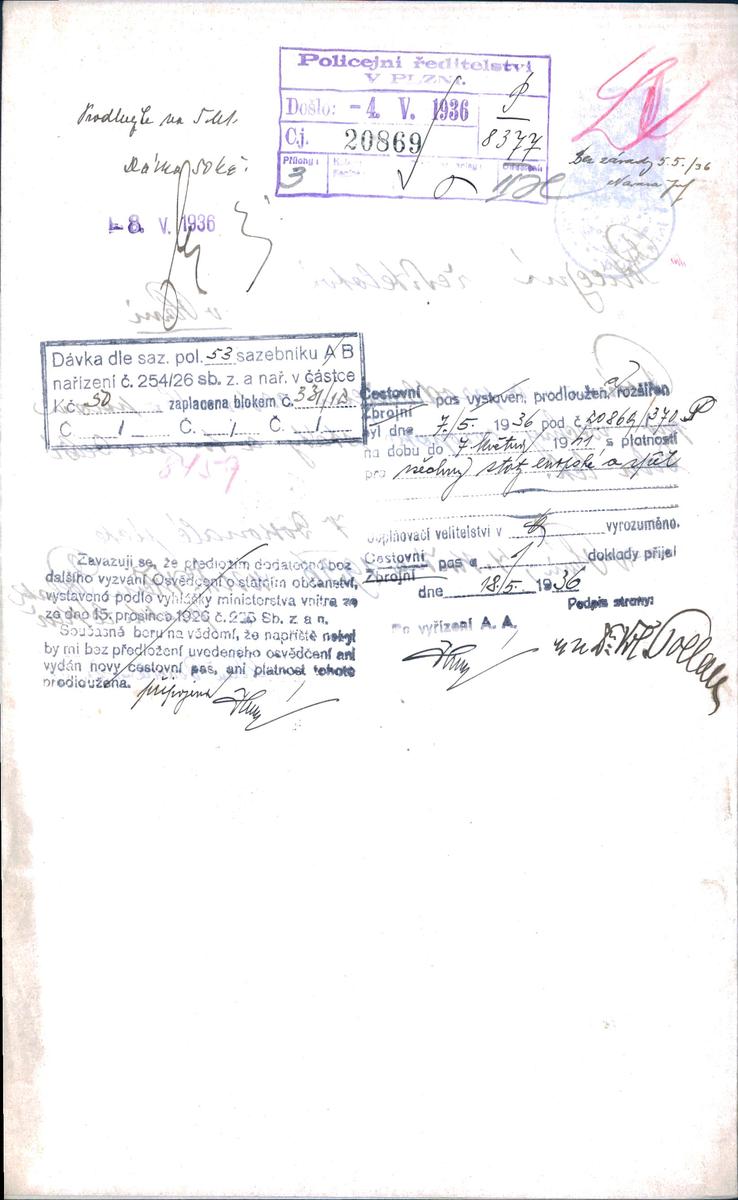 Policejní ředitelství
V PLZNI.
Došlo: -4. V. 1936
Č.j. 20869
8377
Přílohy:
3
na 5 let.
Dávka 50 Kč.
-8. V. 1936
Bez závady 5.5./36
v Plzni
Dávka dle saz. pol. 53 sazebníku A B
nařízení č. 254/26 sb. z. a nař. v částce
Kč 50 zaplacena blokem č. 331/12
Č / Č. / Č. /
8459
Cestovní pas vystaven, prodloužen, a rozšířen
Zbrojní
byl dne 7./5. 1936 pod č. 20869/370 P
na dobu do 7. května 1941 s platností
pro všechny státy evropské a zpět
Doplňovací velitelství v vyrozuměno.
Cestovní pas a / doklady přijel
Zbrojní
dne 18./5. 1936
Podpis strany:
Po vyřízení A. A.
Zavazuji se, že předložím dodatečně bez
dalšího vyzvání Osvědčení o státním občanství,
vystavené podle vyhlášky ministerstva vnitra ze
ze dne 15. prosince 1926 č. 225 Sb. z. a n.
Současně beru na vědomí, že napříště nebyl
by mi bez předložení uvedeného osvědčení ani
vydán nový cestovní pas, ani platnost tohoto
prodloužena.
připojena